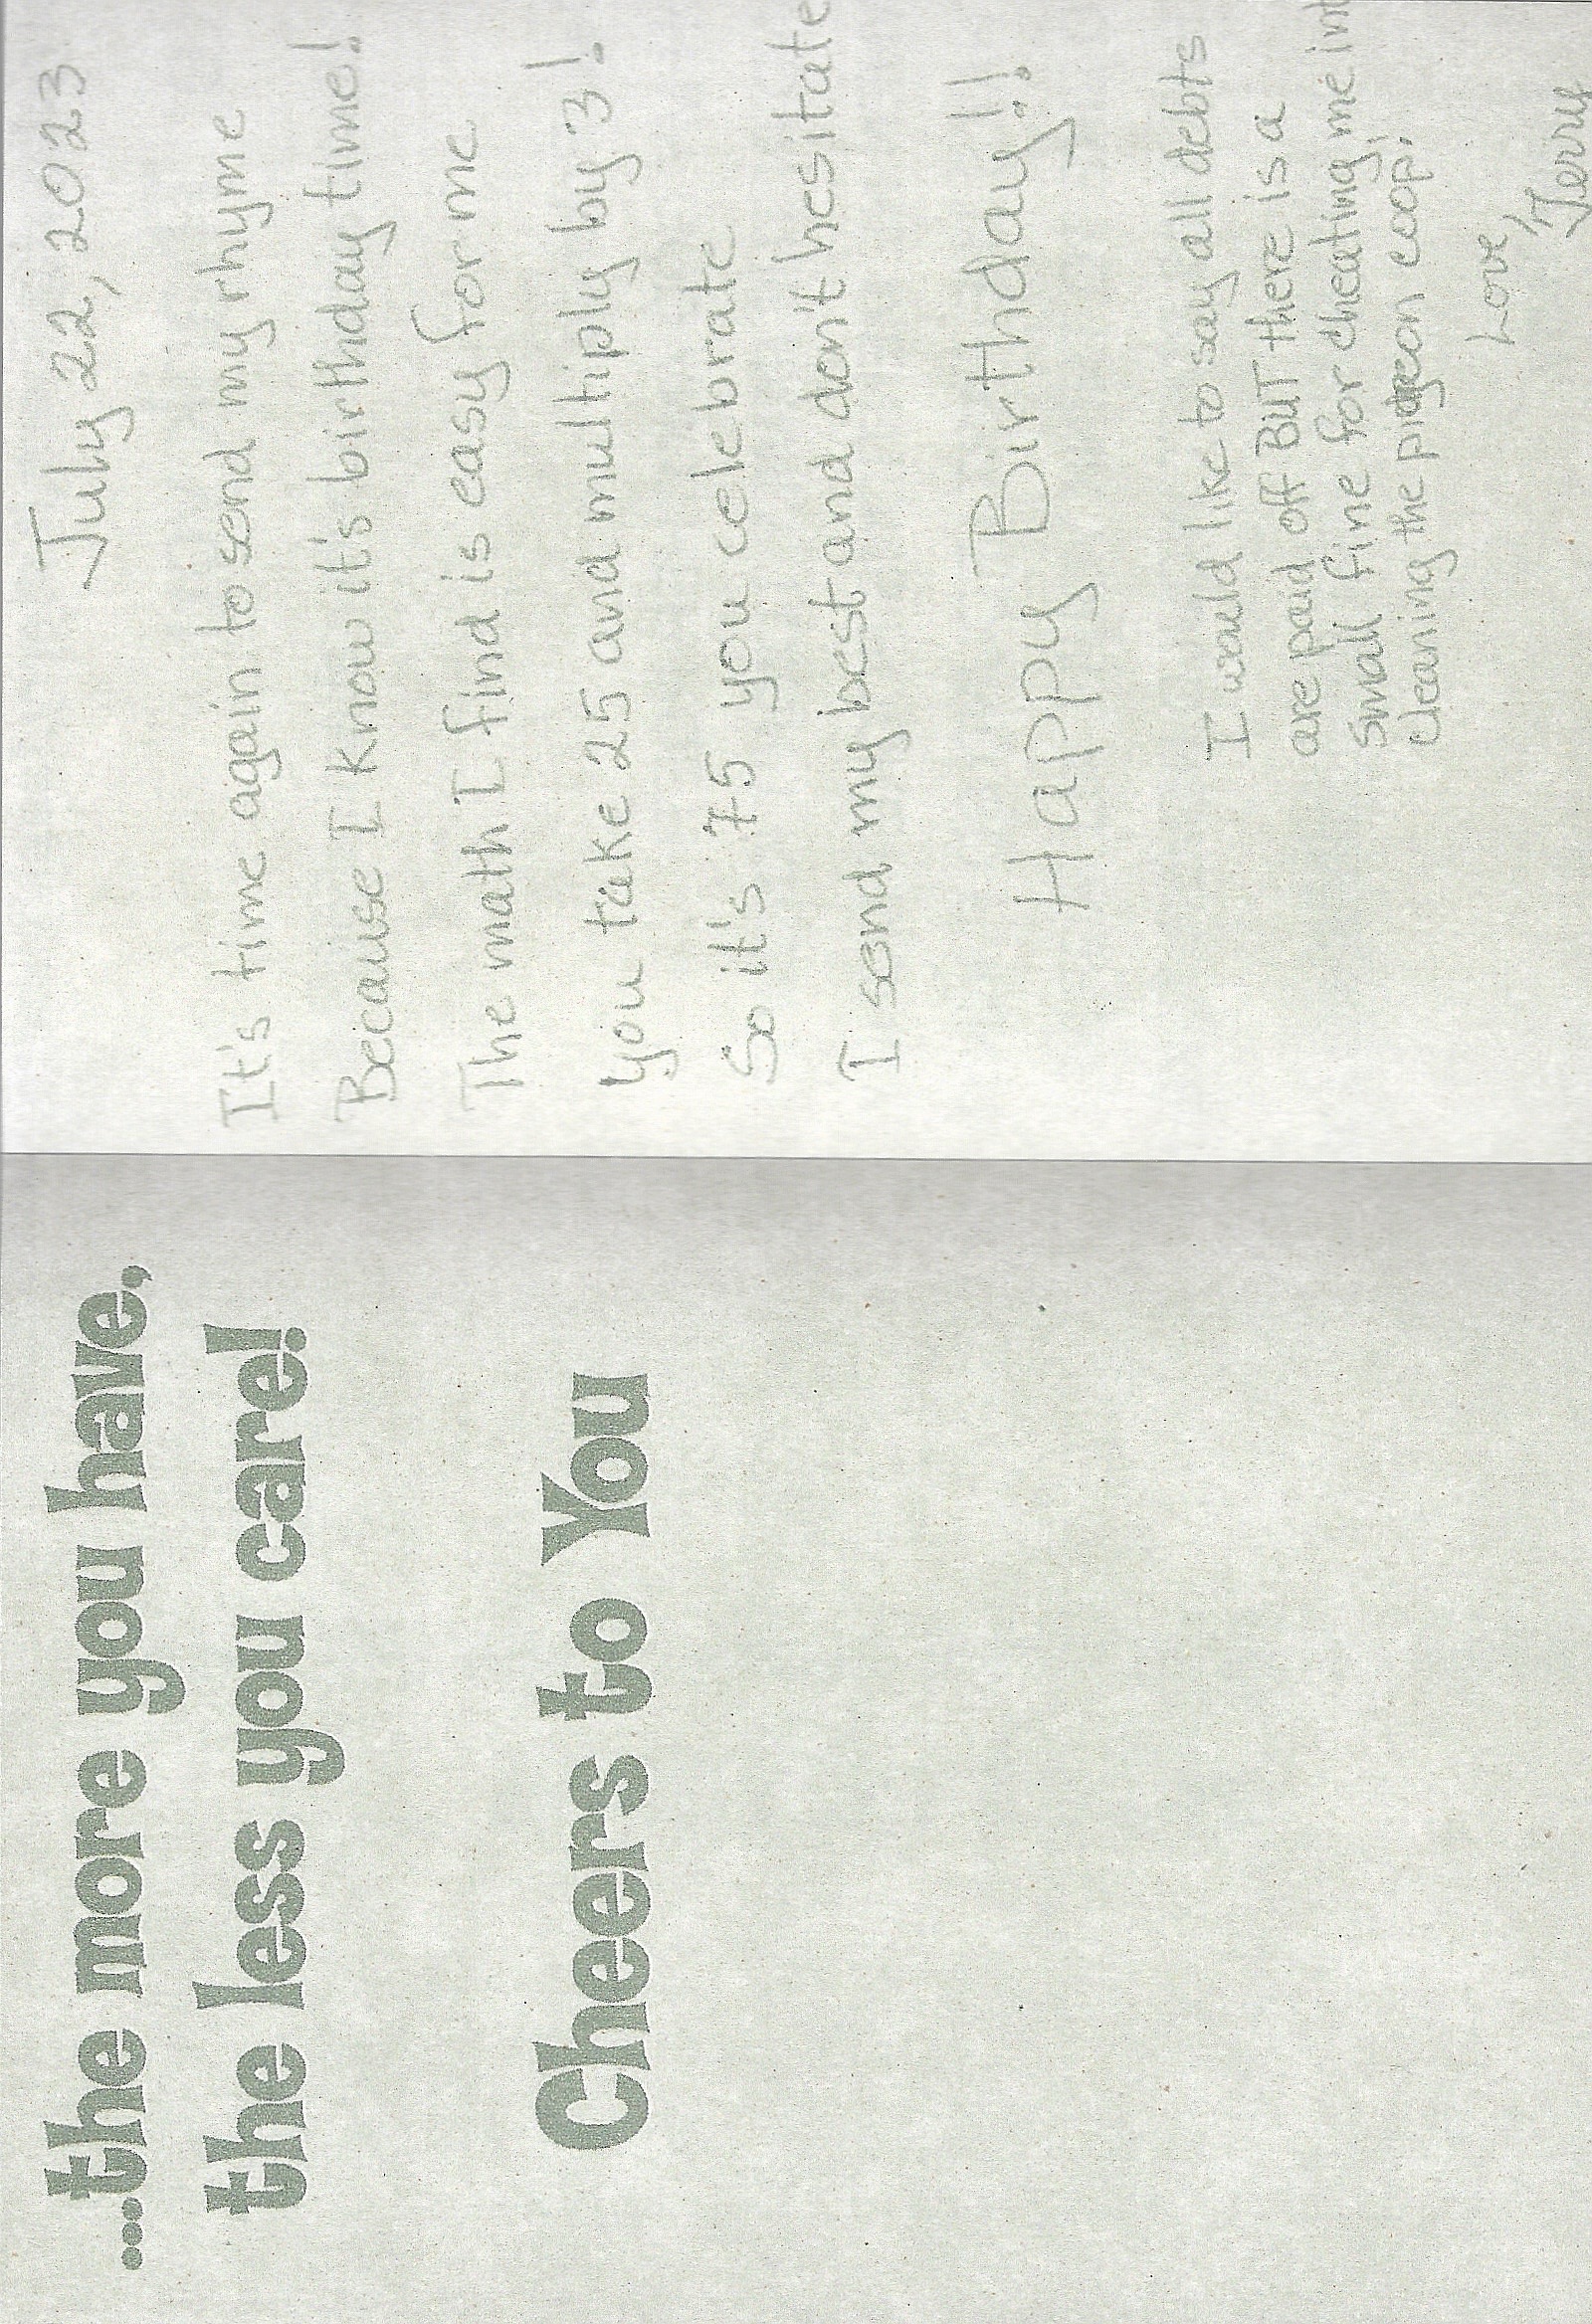 ...the more you have,
the less you care!
Cheers to You
July 22, 2023
It's time again to send my rhyme
Because I know it's birthday time!
The math I find is easy for me
you take 25 and multiply by 3!
So it's 75 you celebrate
I send my best and don't hesitate
Happy Birthday!!
I would like to say all debts
are paid off BUT there is a
small fine for cheating me int
cleaning the pidgeon coop!
Love,
Jerry